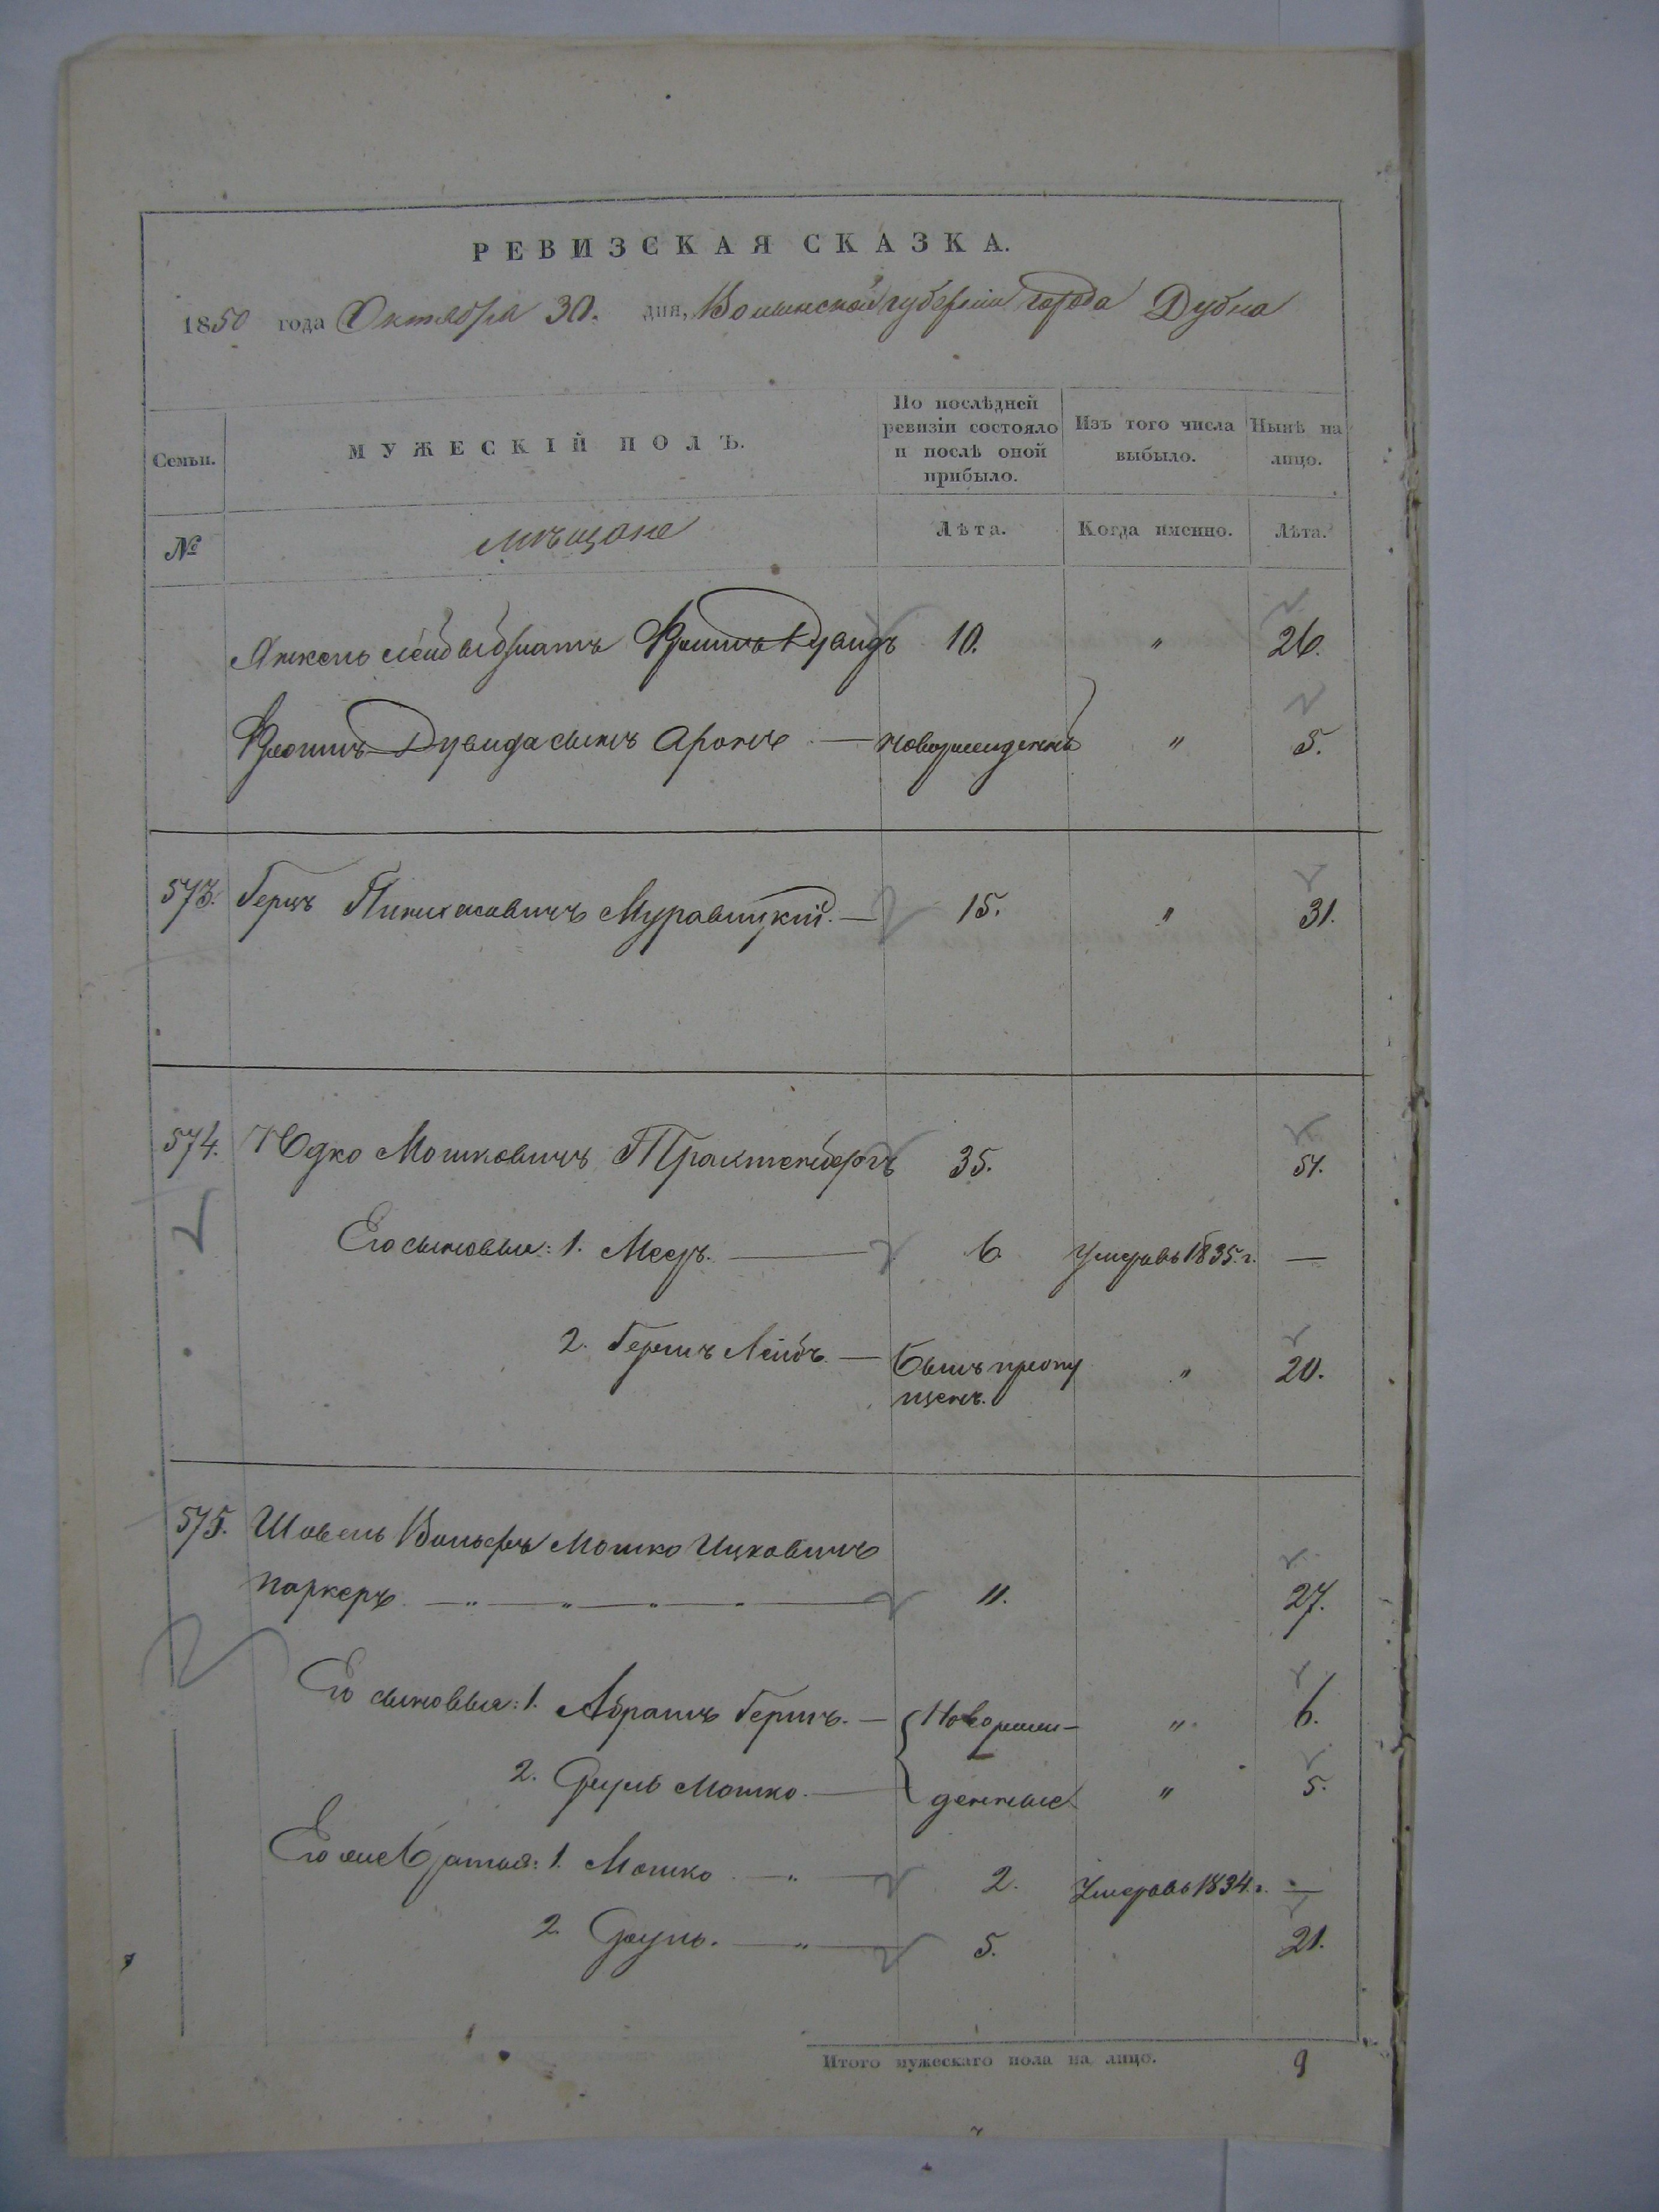 РЕВИЗСКАЯ СКАЗКА.
1850 года Октября 30. дня, Волынской губернии города Дубна
Семьи.
МУЖЕСКІЙ ПОЛЪ.
По послѣдней ревизіи состояло и послѣ оной прибыло.
Изъ того числа выбыло.
Нынѣ на лицо.
№
мѣщане
Лѣта.
Когда именно.
Лѣта.
Лейбы братъ Дувидъ 10. " 26.
Дувида сынъ Аронъ — новорожденный " 5.
573. Герцъ Пинихасовичъ Муравицкий. — 15. " 31.
574. Юдко Мошковичъ Трахтенбергъ 35. 51.
Его сыновья: 1. Меер. — 6. Умеръ въ 1835. г. —
2. Гершъ Лейбъ. — Былъ пропу " 20.
щенъ.
575. Вольфъ Мошко Ицковичъ
Паркеръ. — " — " — " — " — 11. 27.
Его сыновья: 1. Абрамъ Гершъ. — { Неворожи- " 6.
2. Сруль Мошко. — денные " 5.
Его же братья: 1. Мошко — " — 2. Умеръ въ 1834. г. —
2. Сруль. — " — 5. 21.
Итого мужескаго пола на лицо. 9